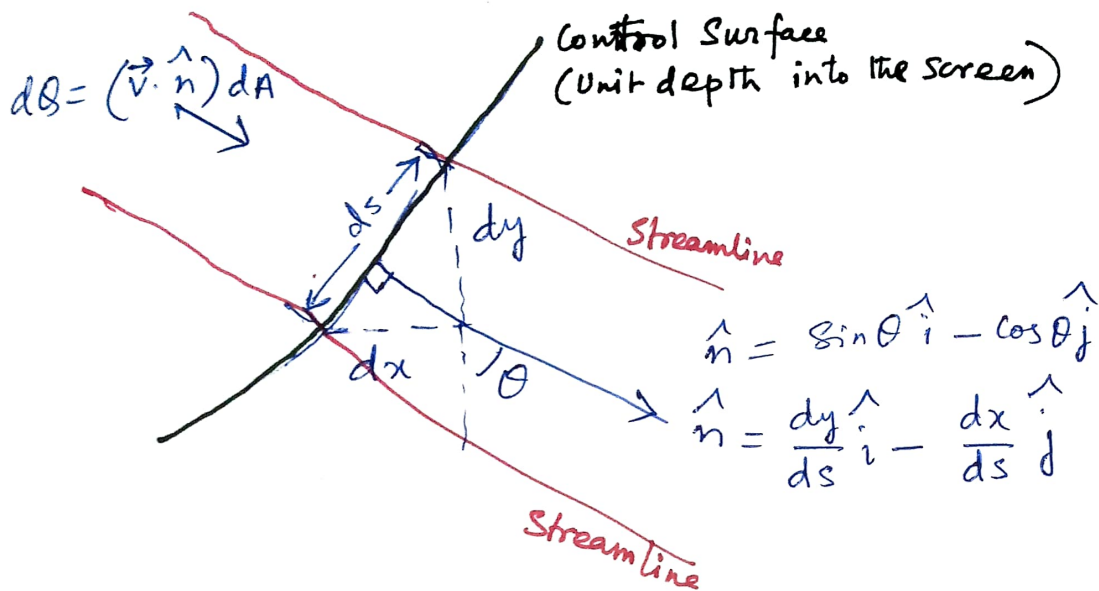 Control Surface
(Unit depth into the screen)
dQ = (v⃗ · n̂) dA
ds
dy
Streamline
dx
θ
n̂ = sinθ î − cosθ ĵ
n̂ = dy/ds î − dx/ds ĵ
Streamline